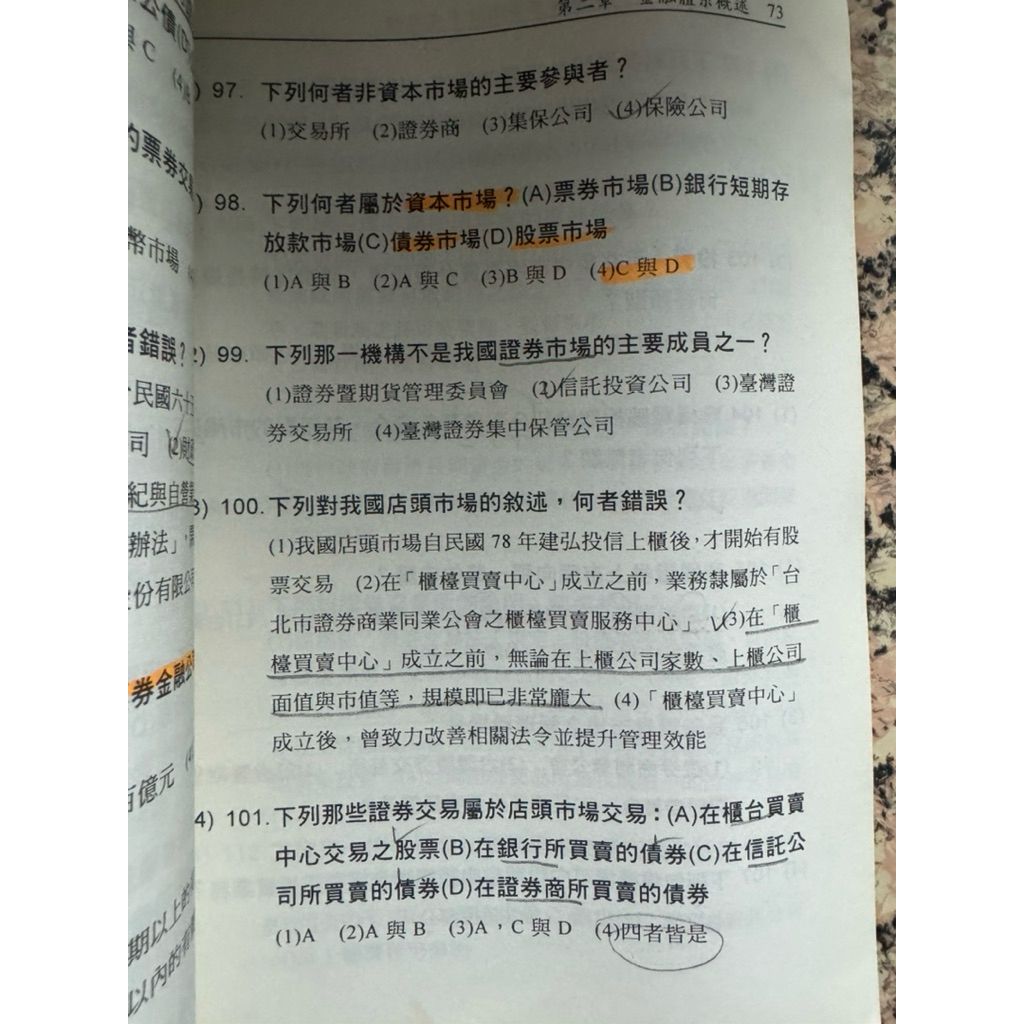 第二章 金融體系概述 73
97. 下列何者非資本市場的主要參與者？
(1)交易所 (2)證券商 (3)集保公司 (4)保險公司
98. 下列何者屬於資本市場？(A)票券市場(B)銀行短期存
放款市場(C)債券市場(D)股票市場
(1)A 與 B (2)A 與 C (3)B 與 D (4)C 與 D
99. 下列那一機構不是我國證券市場的主要成員之一？
(1)證券暨期貨管理委員會 (2)信託投資公司 (3)臺灣證
券交易所 (4)臺灣證券集中保管公司
100. 下列對我國店頭市場的敘述，何者錯誤？
(1)我國店頭市場自民國 78 年建弘投信上櫃後，才開始有股
票交易 (2)在「櫃檯買賣中心」成立之前，業務隸屬於「台
北市證券商業同業公會之櫃檯買賣服務中心」 (3)在「櫃
檯買賣中心」成立之前，無論在上櫃公司家數、上櫃公司
面值與市值等，規模即已非常龐大 (4)「櫃檯買賣中心」
成立後，曾致力改善相關法令並提升管理效能
4) 101. 下列那些證券交易屬於店頭市場交易：(A)在櫃台買賣
中心交易之股票(B)在銀行所買賣的債券(C)在信託公
司所買賣的債券(D)在證券商所買賣的債券
(1)A (2)A 與 B (3)A，C 與 D (4)四者皆是
公債(D
與 C (4)
的票券交
幣市場
者錯誤？
民國六十
司 (2)財
紀與自營
辦法」，
份有限公
券金融公
百億元
期以上的
以內的有